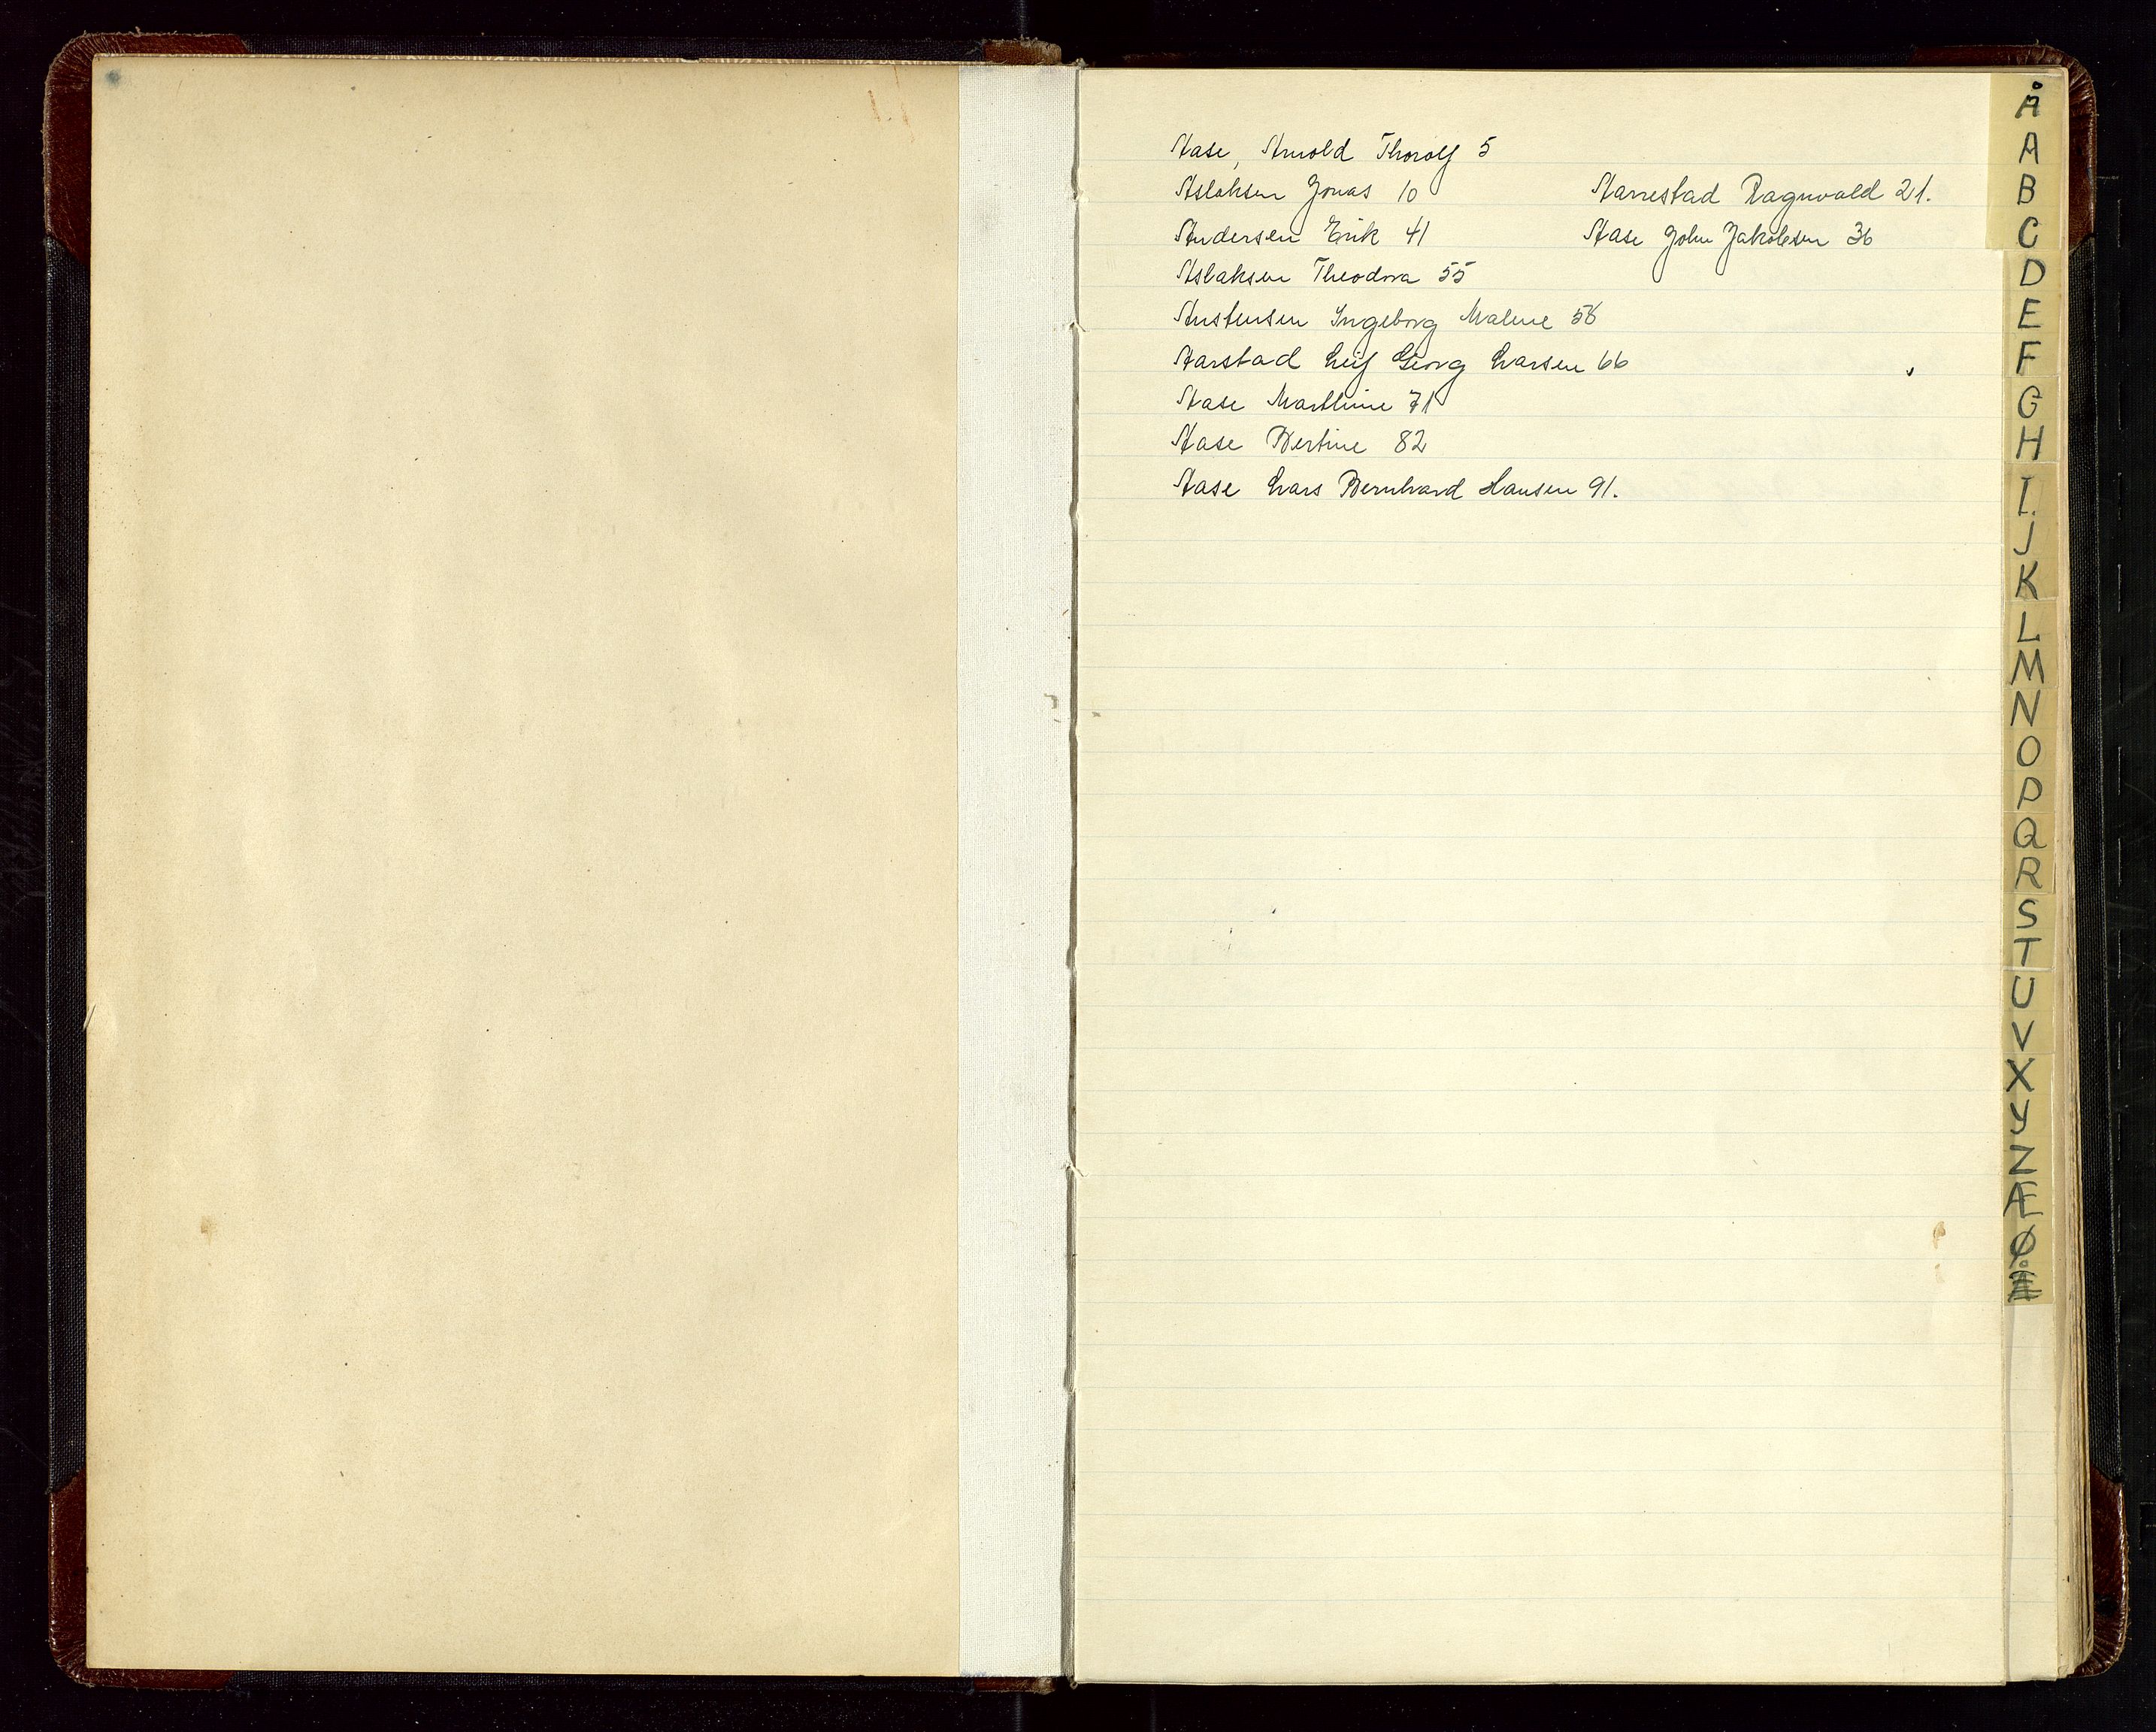 Aase, Arnold Thorolf 5
Aslaksen Jonas 10
Andersen Erik 41
Aslaksen Theodora 55
Austensen Ingeborg Malene 58
Aarstad Leif Georg Larsen 66
Aase Marthine 71
Aase Bertine 82
Aase Lars Bernhard Hansen 91.
Aarrestad Ragnvald 21.
Aase John Jakobsen 36
Å
A
B
C
D
E
F
G
H
I
J
K
L
M
N
O
P
Q
R
S
T
U
V
X
Y
Z
Æ
Ø